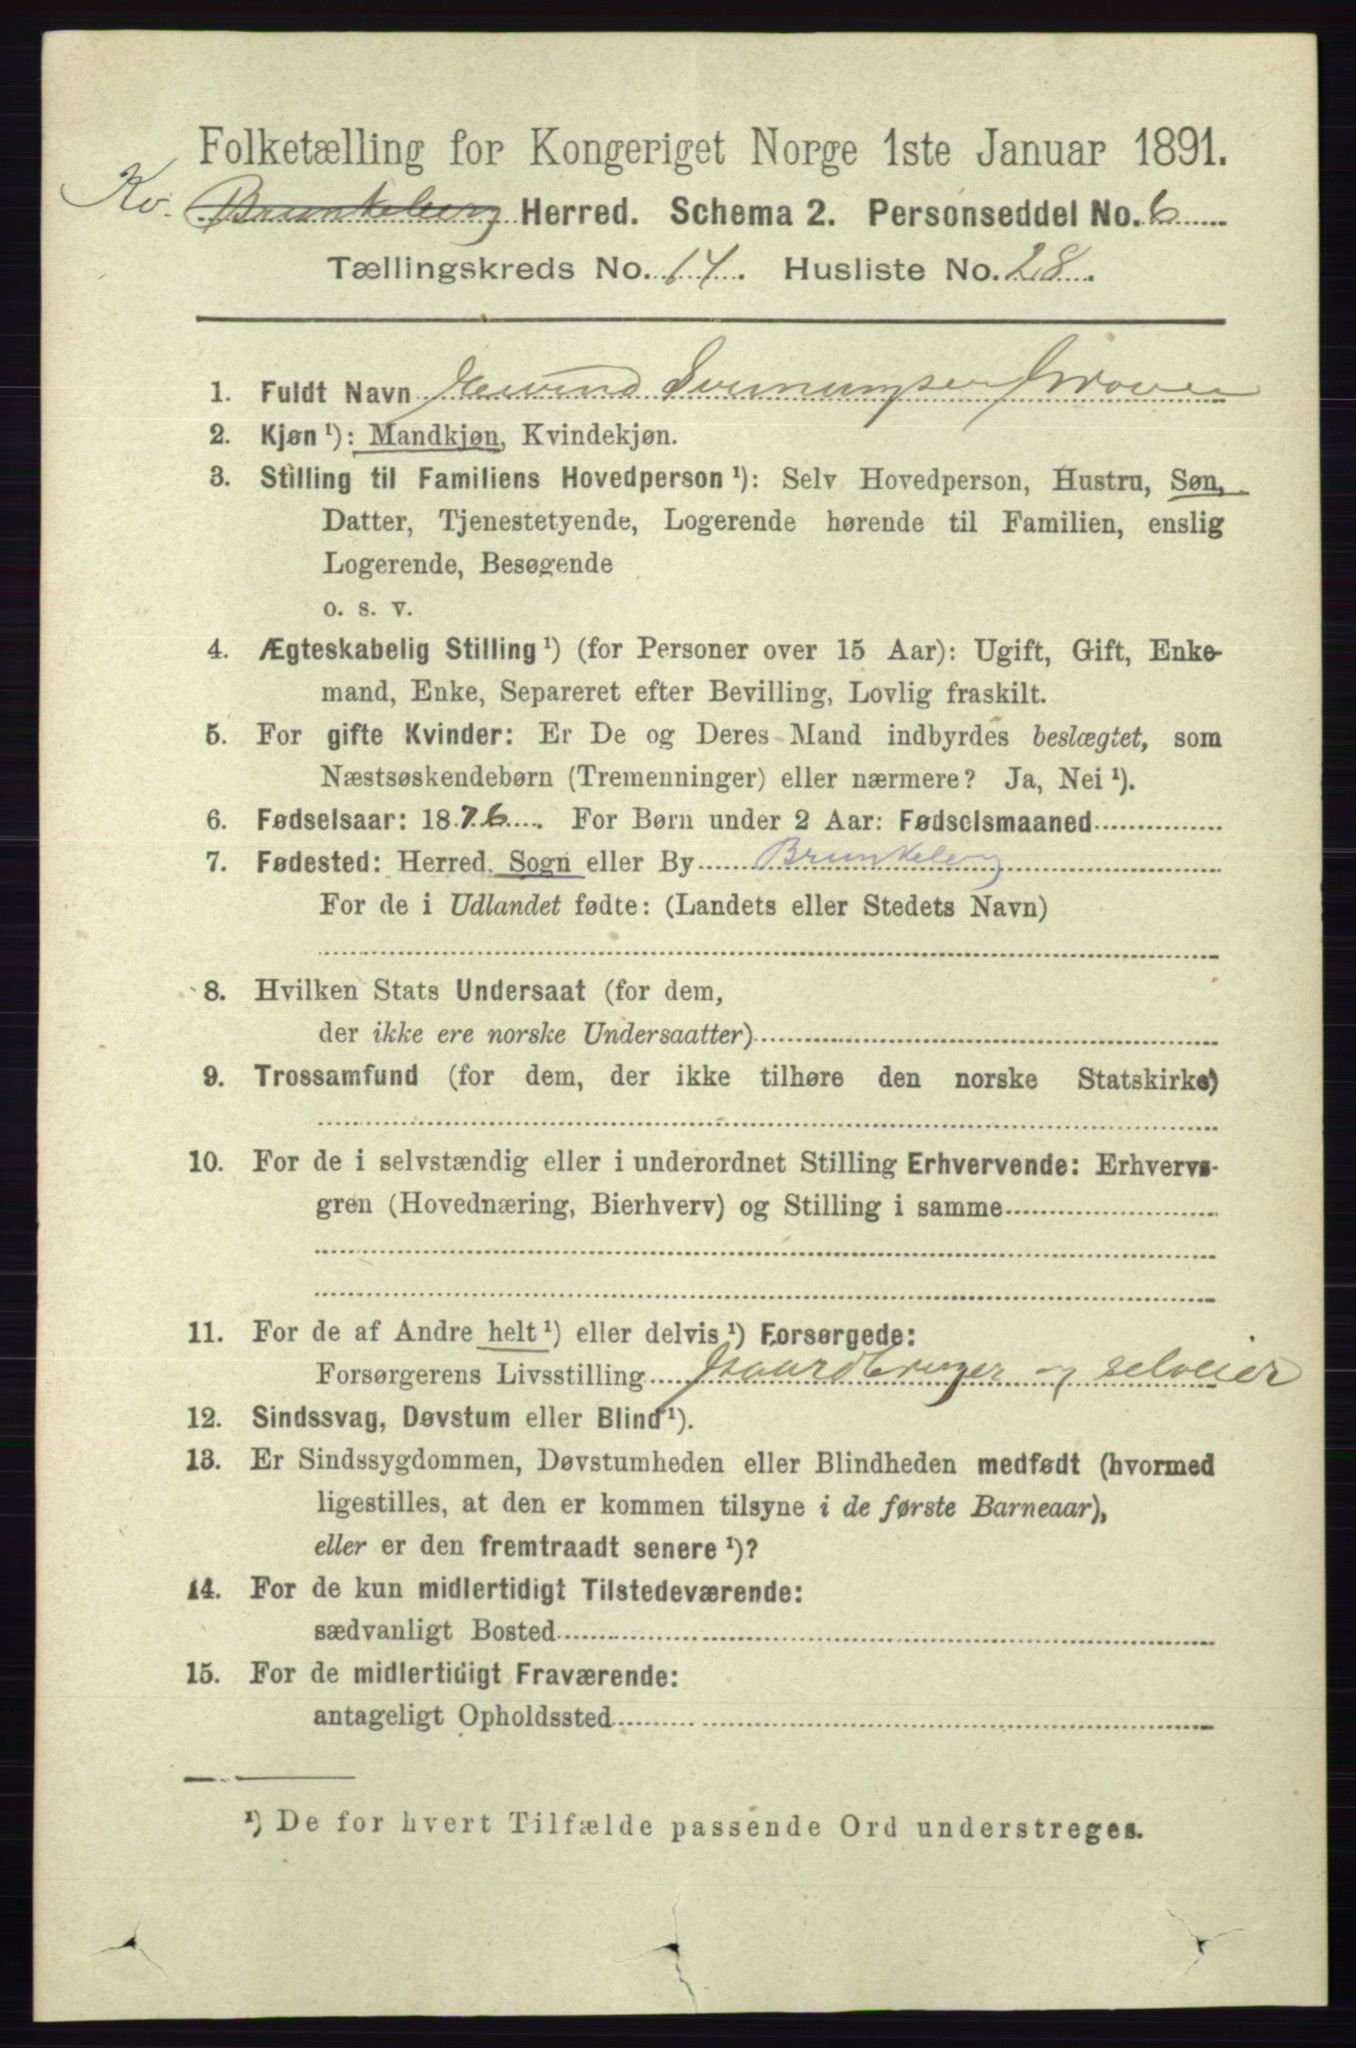 Folketælling for Kongeriget Norge 1ste Januar 1891.
Kv. Brunkeberg Herred. Schema 2. Personseddel No. 6
Tællingskreds No. 14. Husliste No. 28.
1. Fuldt Navn
2. Kjøn ¹): Mandkjøn, Kvindekjøn.
3. Stilling til Familiens Hovedperson ¹): Selv Hovedperson, Hustru, Søn,
Datter, Tjenestetyende, Logerende hørende til Familien, enslig
Logerende, Besøgende
o. s. v.
4. Ægteskabelig Stilling ¹) (for Personer over 15 Aar): Ugift, Gift, Enke-
mand, Enke, Separeret efter Bevilling, Lovlig fraskilt.
5. For gifte Kvinder: Er De og Deres Mand indbyrdes beslægtet, som
Næstsøskendebørn (Tremenninger) eller nærmere? Ja, Nei ¹).
6. Fødselsaar: 1876. For Børn under 2 Aar: Fødselsmaaned
7. Fødested: Herred, Sogn eller By Brunkeberg
For de i Udlandet fødte: (Landets eller Stedets Navn)
8. Hvilken Stats Undersaat (for dem,
der ikke ere norske Undersaatter)
9. Trossamfund (for dem, der ikke tilhøre den norske Statskirke)
10. For de i selvstændig eller i underordnet Stilling Erhvervende: Erhvervs-
gren (Hovednæring, Bierhverv) og Stilling i samme
11. For de af Andre helt ¹) eller delvis ¹) Forsørgede:
Forsørgerens Livsstilling Gaardbruger og selveier
12. Sindssvag, Døvstum eller Blind ¹).
13. Er Sindssygdommen, Døvstumheden eller Blindheden medfødt (hvormed
ligestilles, at den er kommen tilsyne i de første Barneaar),
eller er den fremtraadt senere ¹)?
14. For de kun midlertidigt Tilstedeværende:
sædvanligt Bosted
15. For de midlertidigt Fraværende:
antageligt Opholdssted
¹) De for hvert Tilfælde passende Ord understreges.